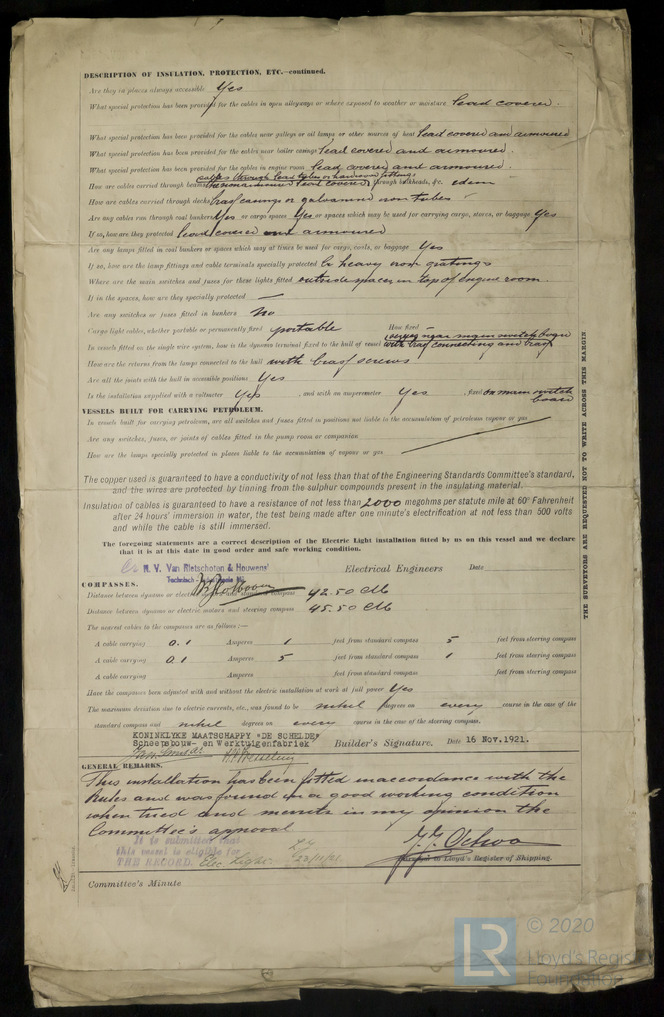 DESCRIPTION OF INSULATION, PROTECTION, ETC.—continued.
Are they in places always accessible Yes
What special protection has been provided for the cables in open alleyways or where exposed to weather or moisture lead covered.
What special protection has been provided for the cables near galleys or oil lamps or other sources of heat lead covered and armoured
What special protection has been provided for the cables near boiler casings lead covered and armoured.
What special protection has been provided for the cables in engine room lead covered and armoured.
cables through lead tubes or
How are cables carried through beams lead covered through bulkheads, &c. idem
How are cables carried through decks brass casings or galvanised iron tubes
Are any cables run through coal bunkers Yes or cargo spaces Yes or spaces which may be used for carrying cargo, stores, or baggage Yes
If so, how are they protected lead covered and armoured
Are any lamps fitted in coal bunkers or spaces which may at times be used for cargo, coals, or baggage Yes
If so, how are the lamp fittings and cable terminals specially protected by heavy iron gratings
Where are the main switches and fuses for these lights fitted outside spaces in top of engine room.
If in the spaces, how are they specially protected —
Are any switches or fuses fitted in bunkers No
Cargo light cables, whether portable or permanently fixed portable How fixed
In vessels fitted on the single wire system, how is the dynamo terminal fixed to the hull of vessel with brass connecting and brass
How are the returns from the lamps connected to the hull with brass screws
Are all the joints with the hull in accessible positions Yes
Is the installation supplied with a voltmeter Yes , and with an amperemeter Yes , fixed on main switch board
VESSELS BUILT FOR CARRYING PETROLEUM.
In vessels built for carrying petroleum, are all switches and fuses fitted in positions not liable to the accumulation of petroleum vapour or gas
Are any switches, fuses, or joints of cables fitted in the pump room or companion
How are the lamps specially protected in places liable to the accumulation of vapour or gas
The copper used is guaranteed to have a conductivity of not less than that of the Engineering Standards Committee's standard,
and the wires are protected by tinning from the sulphur compounds present in the insulating material.
Insulation of cables is guaranteed to have a resistance of not less than 2000 megohms per statute mile at 60° Fahrenheit
after 24 hours' immersion in water, the test being made after one minute's electrification at not less than 500 volts
and while the cable is still immersed.
The foregoing statements are a correct description of the Electric Light installation fitted by us on this vessel and we declare
that it is at this date in good order and safe working condition.
N. V. Van Rietschoten & Houwens'
Electrical Engineers Date
COMPASSES.
Distance between dynamo or electric motors and standard compass 42.50
Distance between dynamo or electric motors and steering compass 45.50
The nearest cables to the compasses are as follows:—
A cable carrying 0.1 Amperes 1 feet from standard compass 5 feet from steering compass
A cable carrying 0.1 Amperes 5 feet from standard compass 1 feet from steering compass
A cable carrying Amperes feet from standard compass feet from steering compass
Have the compasses been adjusted with and without the electric installation at work at full power Yes
The maximum deviation due to electric currents, etc., was found to be nihil degrees on every course in the case of the
standard compass and nihil degrees on every course in the case of the steering compass.
KONINKLYKE MAATSCHAPPY "DE SCHELDE"
Scheepsbouw- en Werktuigenfabriek Builder's Signature. Date 16 Nov.1921.
GENERAL REMARKS.
This installation has been fitted in accordance with the
Rules and was found in a good working condition
when tried and merits in my opinion the
Committee's approval
It is submitted that
this vessel is eligible for
THE RECORD. Elec. Light. 23/11/21.
Surveyor to Lloyd's Register of Shipping.
Committee's Minute
THE SURVEYORS ARE REQUESTED NOT TO WRITE ACROSS THIS MARGIN
LR
© 2020
Lloyd's Regis
Foundation